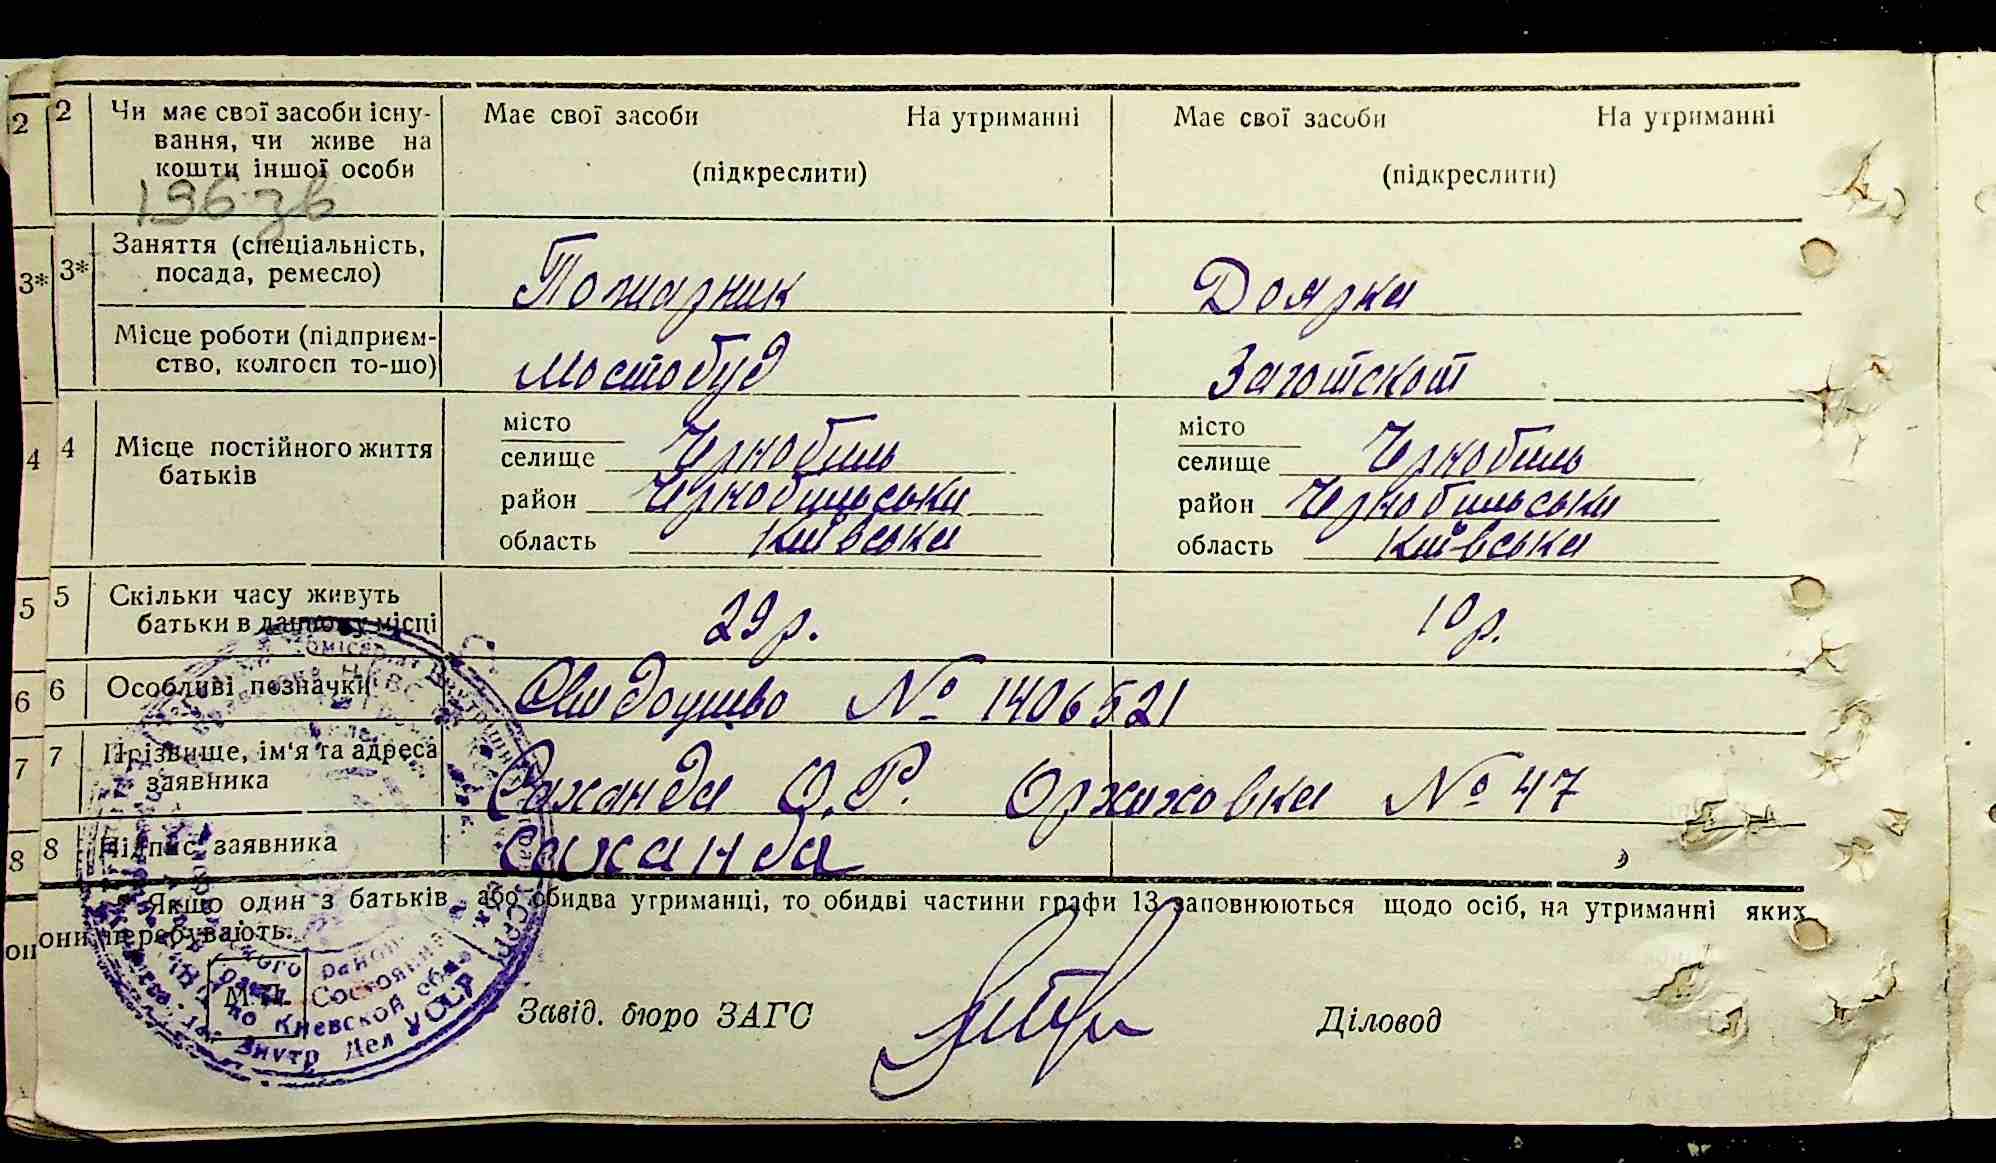 2 2 Чи має свої засоби існу- Має свої засоби На утриманні Має свої засоби На утриманні
вання, чи живе на
кошти іншої особи (підкреслити) (підкреслити)
196 зв
3* 3* Заняття (спеціальність, Пожарник Доярка
посада, ремесло)
Місце роботи (підприєм- Мостобуд Заготскот
ство, колгосп то-що)
4 4 Місце постійного життя місто Чернобиль місто Чернобиль
батьків селище селище
район Чернобильськи район Чернобильськи
область Київська область Київська
5 5 Скільки часу живуть 29 р. 10 р.
батьки в данному місці
6 6 Особливі позначки Свидоцтво № 1406521
7 7 Прізвище, ім'я та адреса Саханда О.Р. Оржиховка № 47
заявника
8 8 Підпис заявника Саханда
Якщо один з батьків, або обидва утриманці, то обидві частини графи 13 заповнюються щодо осіб, на утриманні яких
они перебувають.
М.П. Завід. бюро ЗАГС Діловод
Состояния
Киевской обл
Внутр Дел УССР